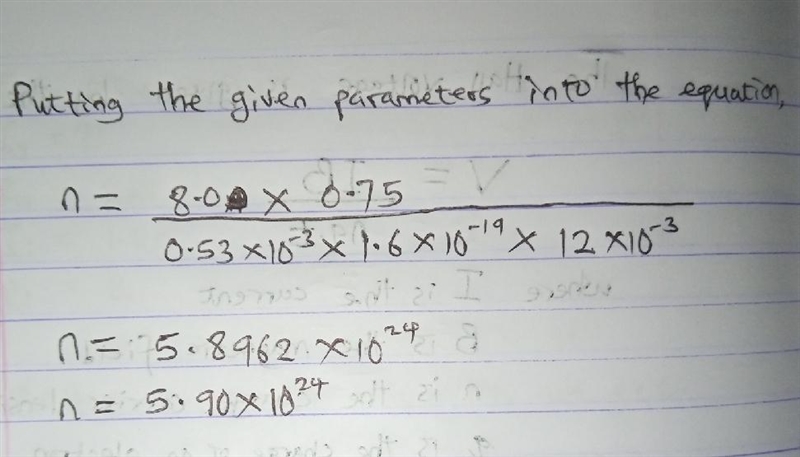 Putting the given parameters into the equation,
n = 8.0 × 0.75
0.53 ×10⁻³ × 1.6 × 10⁻¹⁹ × 12 ×10⁻³
n = 5.8962 ×10²⁴
n = 5.90×10²⁴